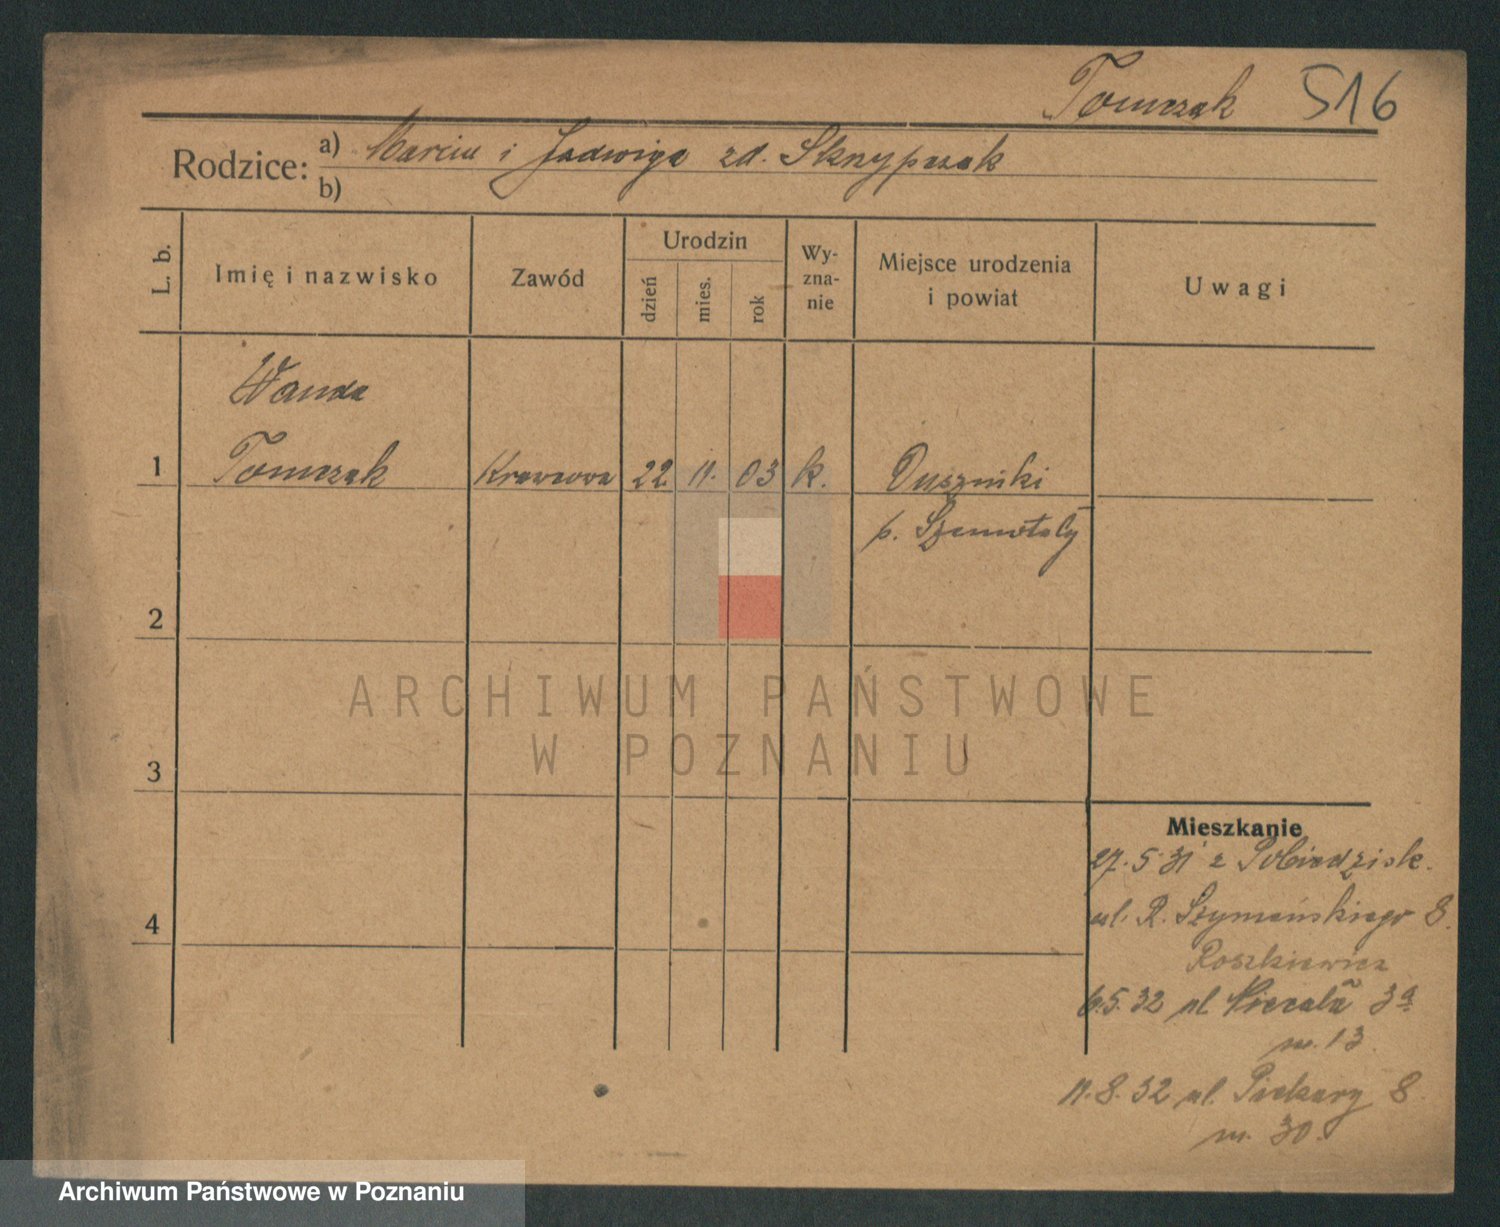 Tomczak 516
Rodzice: a) Marcin i Jadwiga zd. Skrypczak
b)
L. b.
Imię i nazwisko
Zawód
Urodzin
dzień
mies.
rok
Wy-
zna-
nie
Miejsce urodzenia
i powiat
Uwagi
Wanda
1 Tomczak Krawcowa 22 11. 03 k. Duszniki
p. Szamotuły
2
3
4
ARCHIWUM PAŃSTWOWE
W POZNANIU
Mieszkanie
27.5.31 z Pobiedzisk.
ul. R. Szymańskiego 8.
Roszkiewicz
6.5.32 ul 3a
m. 13
11.8.32 ul. Piekary 8
m. 30.
Archiwum Państwowe w Poznaniu